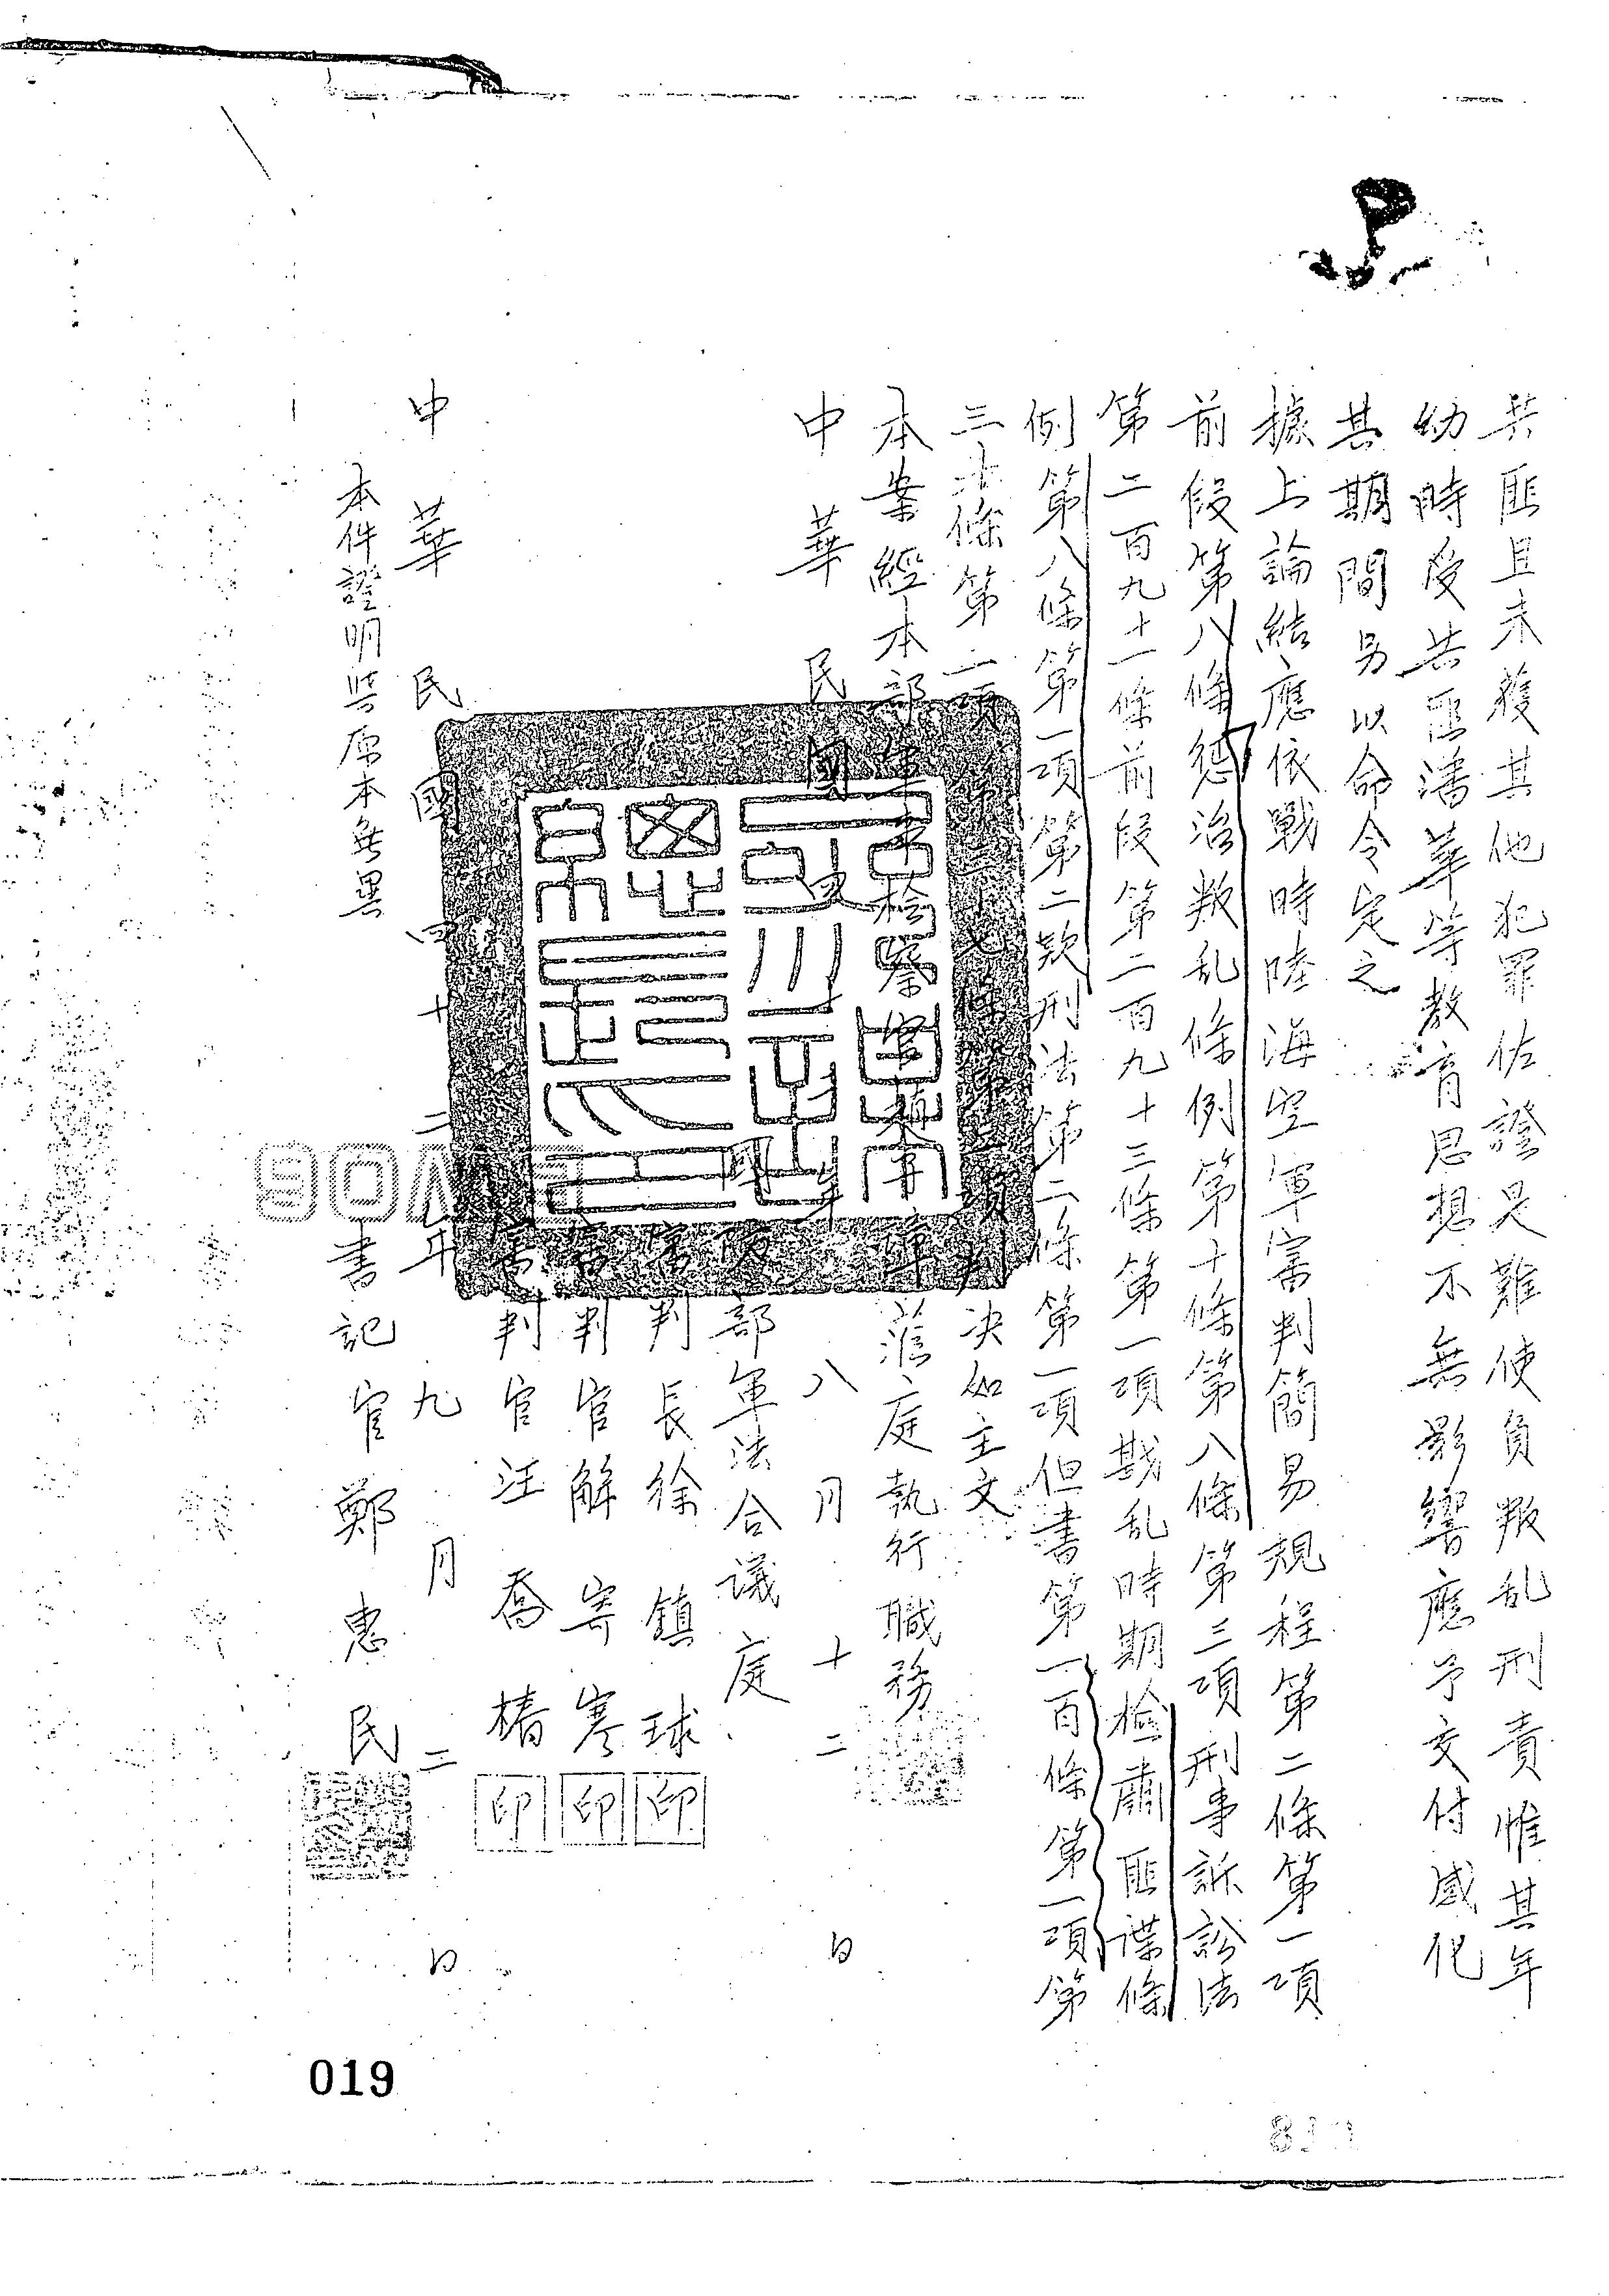 共匪且未獲其他犯罪佐證是難使負叛乱刑責惟其年
幼時受共匪潘華等教育思想不無影響應予交付感化
其期間另以命令定之
據上論結應依戰時陸海空軍審判簡易規程第二條第一項
前段第八條懲治叛乱條例第十條第八條第三項刑事訴訟法
第二百九十一條前段第二百九十三條第一項戡乱時期檢肅匪諜條
例第八條第一項第二款刑法第二條第一項但書第一百條第一項第
三十條第二項 決如主文
本案經本部軍事檢察官 蒞庭執行職務
中華民國 年八月十二日
部軍法合議庭
判長徐鎮球 印
判官解寄寒 印
判官汪喬椿 印
中華民國四十二年九月二日
本件證明與原本無異
書記官鄭惠民
019